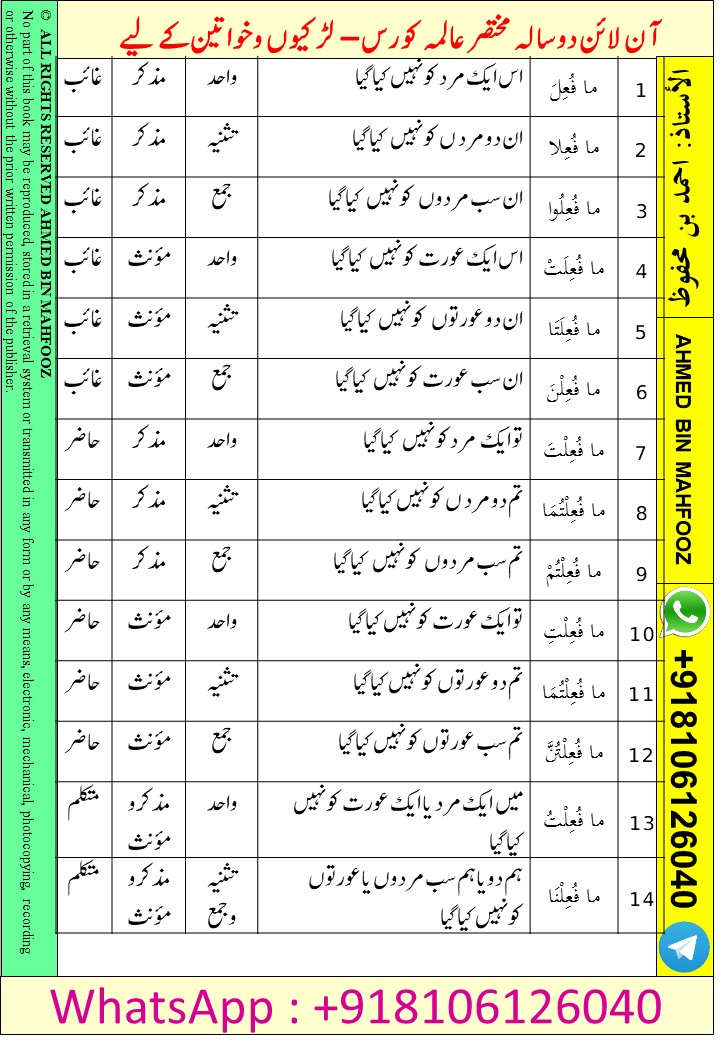 آن لائن دو سالہ مختصر عالمہ کورس – لڑکیوں و خواتین کے لیے
1 ما فُعِلَ اس ایک مرد کو نہیں کیا گیا واحد مذکر غائب
2 ما فُعِلا ان دو مردں کو نہیں کیا گیا تثنیہ مذکر غائب
3 ما فُعِلُوا ان سب مردوں کو نہیں کیا گیا جمع مذکر غائب
4 ما فُعِلَتْ اس ایک عورت کو نہیں کیا گیا واحد مؤنث غائب
5 ما فُعِلَتَا ان دو عورتوں کو نہیں کیا گیا تثنیہ مؤنث غائب
6 ما فُعِلْنَ ان سب عورت کو نہیں کیا گیا جمع مؤنث غائب
7 ما فُعِلْتَ تو ایک مرد کو نہیں کیا گیا واحد مذکر حاضر
8 ما فُعِلْتُمَا تم دو مردں کو نہیں کیا گیا تثنیہ مذکر حاضر
9 ما فُعِلْتُمْ تم سب مردوں کو نہیں کیا گیا جمع مذکر حاضر
10 ما فُعِلْتِ تو ایک عورت کو نہیں کیا گیا واحد مؤنث حاضر
11 ما فُعِلْتُمَا تم دو عورتوں کو نہیں کیا گیا تثنیہ مؤنث حاضر
12 ما فُعِلْتُنَّ تم سب عورتوں کو نہیں کیا گیا جمع مؤنث حاضر
13 ما فُعِلْتُ میں ایک مرد یا ایک عورت کو نہیں واحد مذکر و متکلم
کیا گیا مؤنث
14 ما فُعِلْنَا ہم دو یا ہم سب مردوں یا عورتوں تثنیہ مذکر و متکلم
کو نہیں کیا گیا و جمع مؤنث
الأستاذ: احمد بن محفوظ
AHMED BIN MAHFOOZ
+918106126040
© ALL RIGHTS RESERVED AHMED BIN MAHFOOZ
No part of this book may be reproduced, stored in a retrieval system or transmitted in any form or by any means, electronic, mechanical, photocopying, recording
or otherwise without the prior written permission of the publisher.
WhatsApp : +918106126040